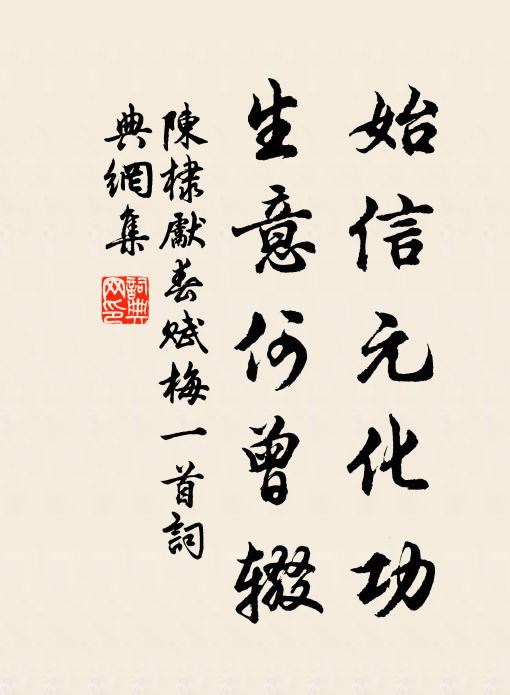 始信元化功
生意何曾辍
陳棣獻春賦梅一首詞
典網集
詞典
网印